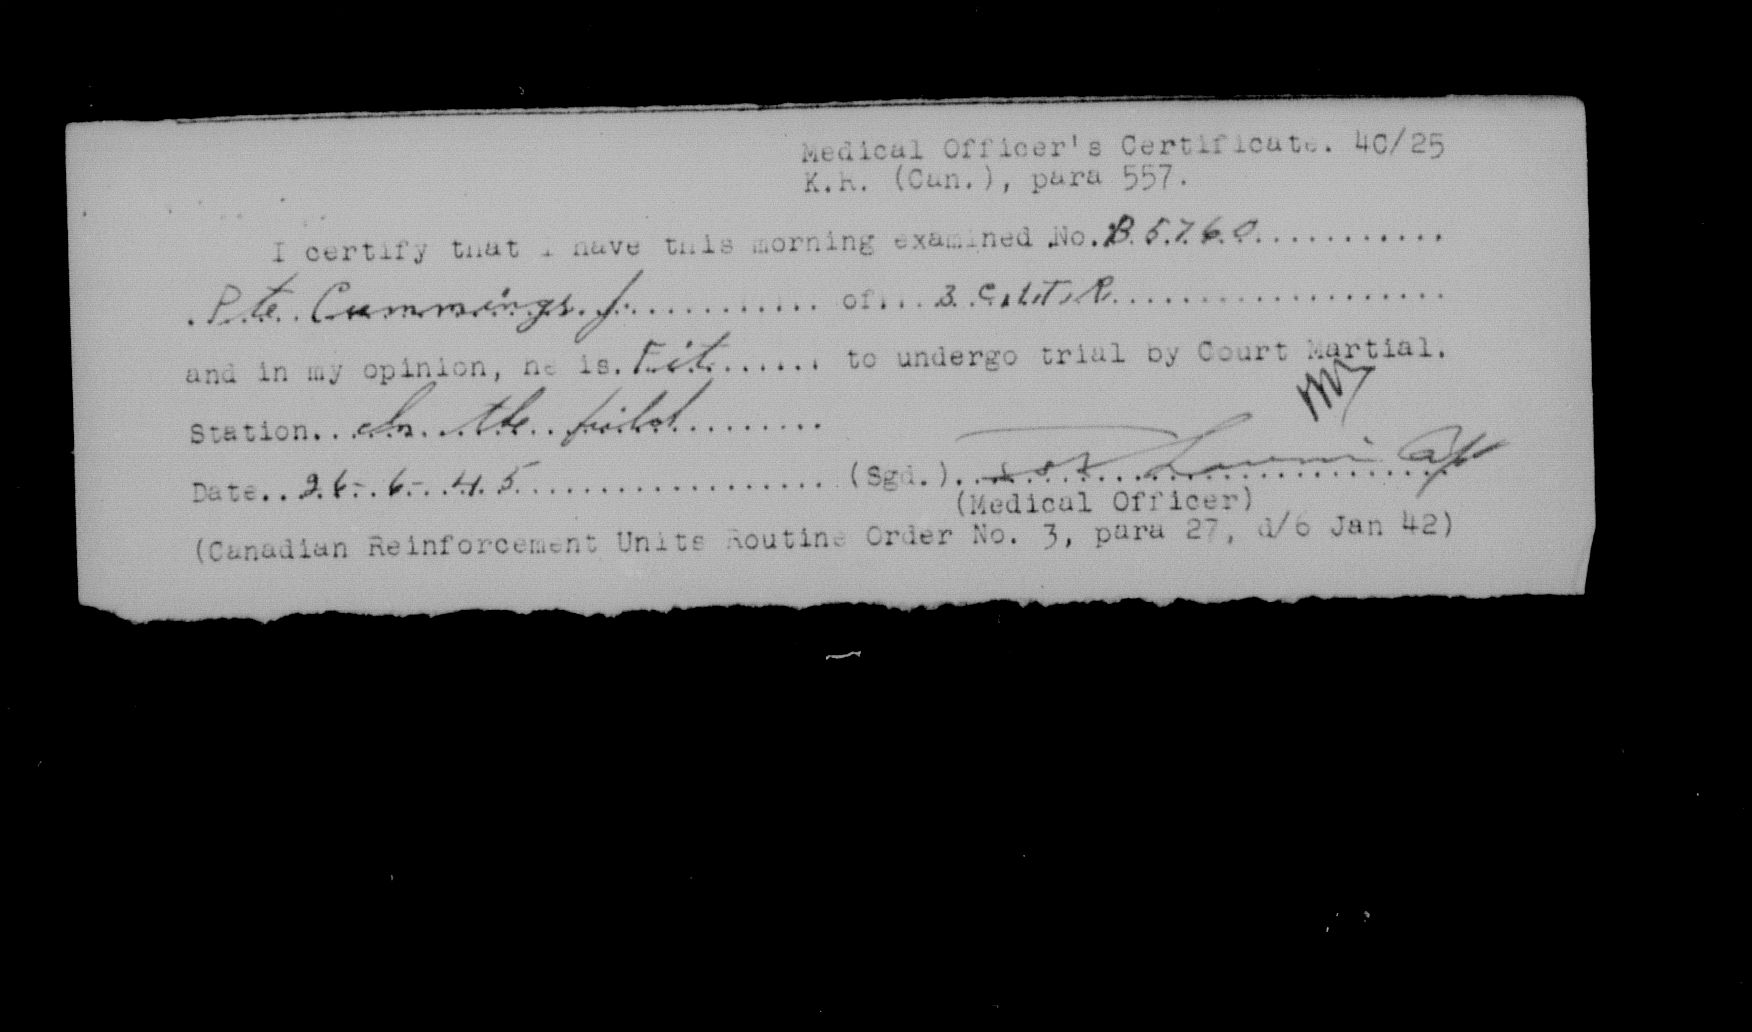 Medical Officer's Certificate. 4C/25
K.R. (Can.), para 557.
I certify that I have this morning examined No. B5760
Pte Cummings J. of 3 C.I.T.R.
and in my opinion, he is Fit to undergo trial by Court Martial.
Station In the field
Date 26-6-45 (Sgd.)
(Medical Officer)
(Canadian Reinforcement Units Routine Order No. 3, para 27, d/6 Jan 42)